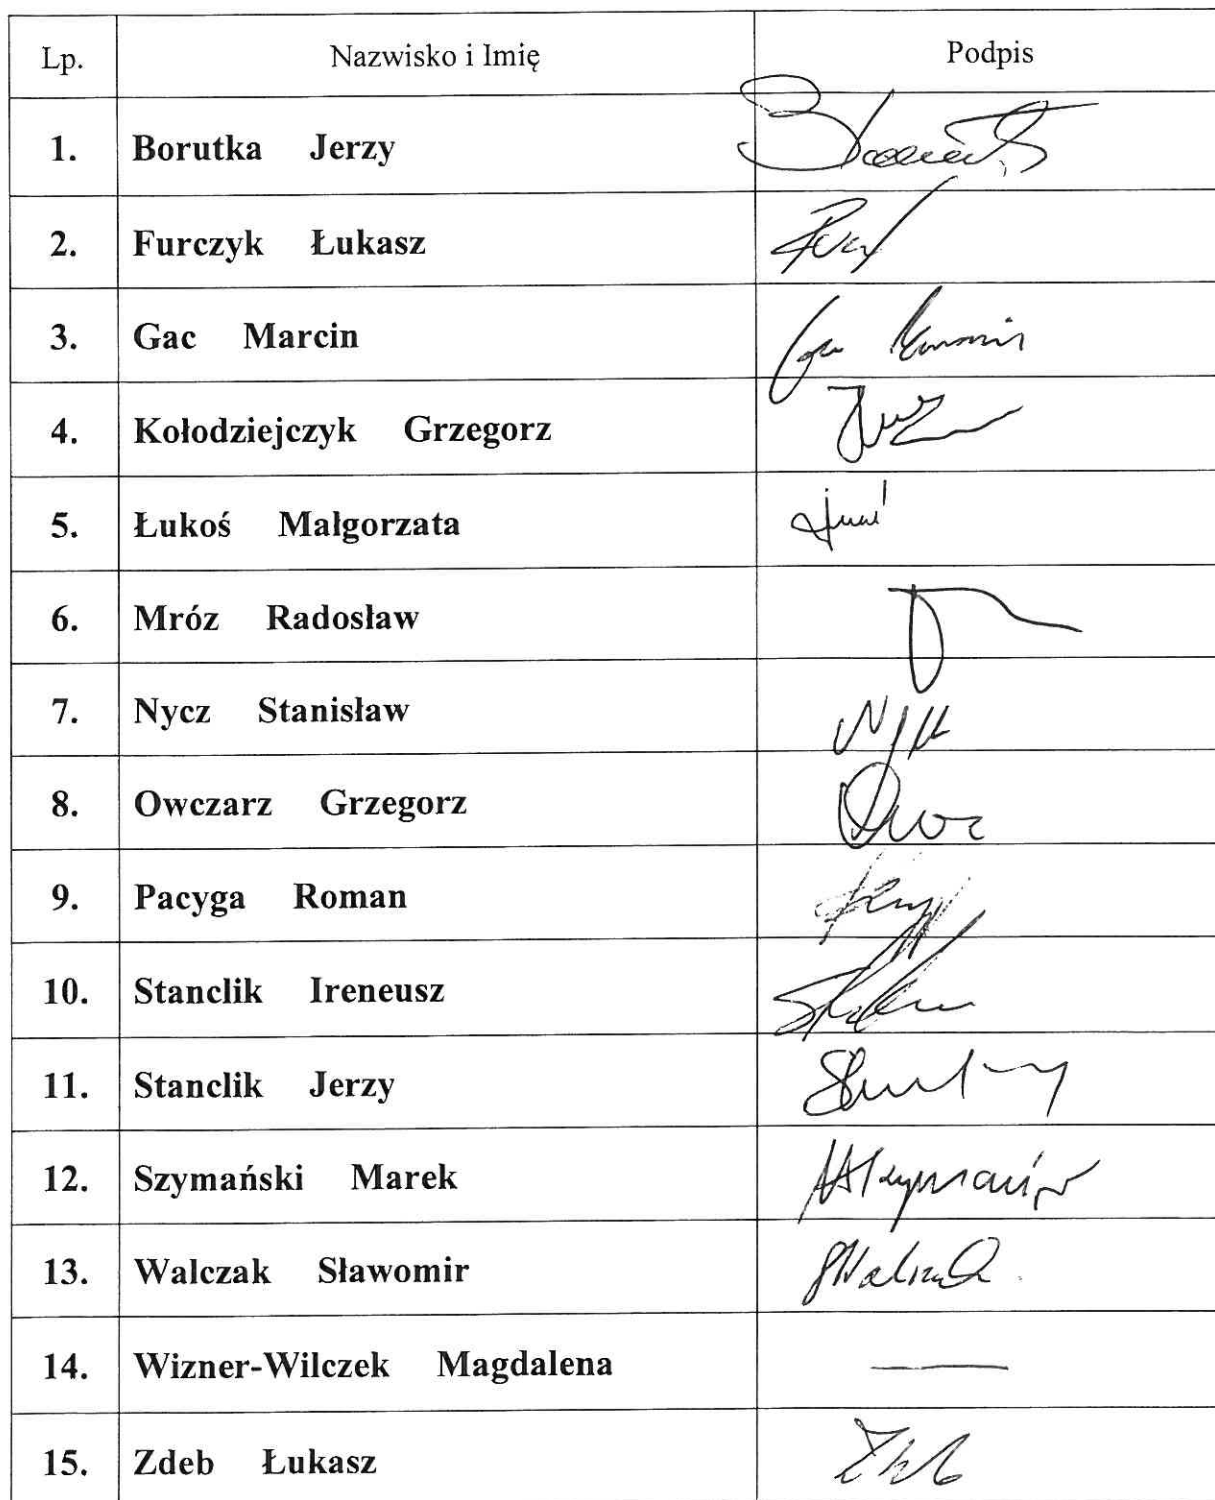 Lp. Nazwisko i Imię Podpis
1. Borutka Jerzy
2. Furczyk Łukasz
3. Gac Marcin
4. Kołodziejczyk Grzegorz
5. Łukoś Małgorzata
6. Mróz Radosław
7. Nycz Stanisław
8. Owczarz Grzegorz
9. Pacyga Roman
10. Stanclik Ireneusz
11. Stanclik Jerzy
12. Szymański Marek
13. Walczak Sławomir
14. Wizner-Wilczek Magdalena —
15. Zdeb Łukasz